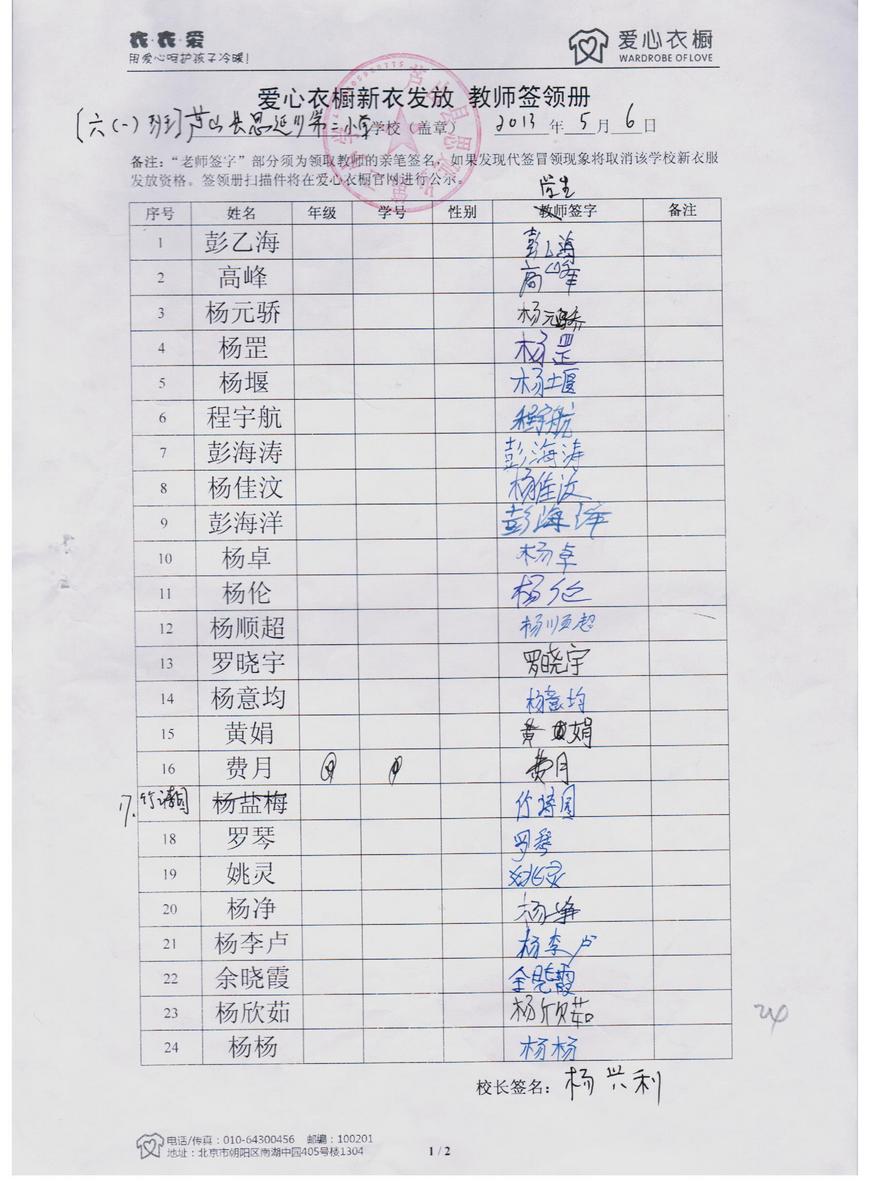 衣·衣·爱
用爱心呵护孩子冷暖!
爱心衣橱
WARDROBE OF LOVE
爱心衣橱新衣发放 教师签领册
[六(一)班] 芦山县思延乡第二小学学校(盖章) 2013 年 5 月 6 日
备注:“老师签字”部分须为领取教师的亲笔签名,如果发现代签冒领现象将取消该学校新衣服
发放资格。签领册扫描件将在爱心衣橱官网进行公示。
学生
序号 姓名 年级 学号 性别 教师签字 备注
1 彭乙海 彭乙海
2 高峰 高峰
3 杨元骄 杨元骄
4 杨罡 杨罡
5 杨堰 杨堰
6 程宇航 程宇航
7 彭海涛 彭海涛
8 杨佳汶 杨佳汶
9 彭海洋 彭海洋
10 杨卓 杨卓
11 杨伦 杨伦
12 杨顺超 杨顺超
13 罗晓宇 罗晓宇
14 杨意均 杨意均
15 黄娟 黄娟
16 费月 费月
17. 竹诗园 杨盐梅 竹诗园
18 罗琴 罗琴
19 姚灵 姚灵
20 杨净 杨净
21 杨李卢 杨李卢
22 余晓霞 余晓霞
23 杨欣茹 杨欣茹
24 杨杨 杨杨
24
校长签名: 杨兴利
电话/传真:010-64300456 邮编:100201
地址:北京市朝阳区南湖中园405号楼1304
1 / 2